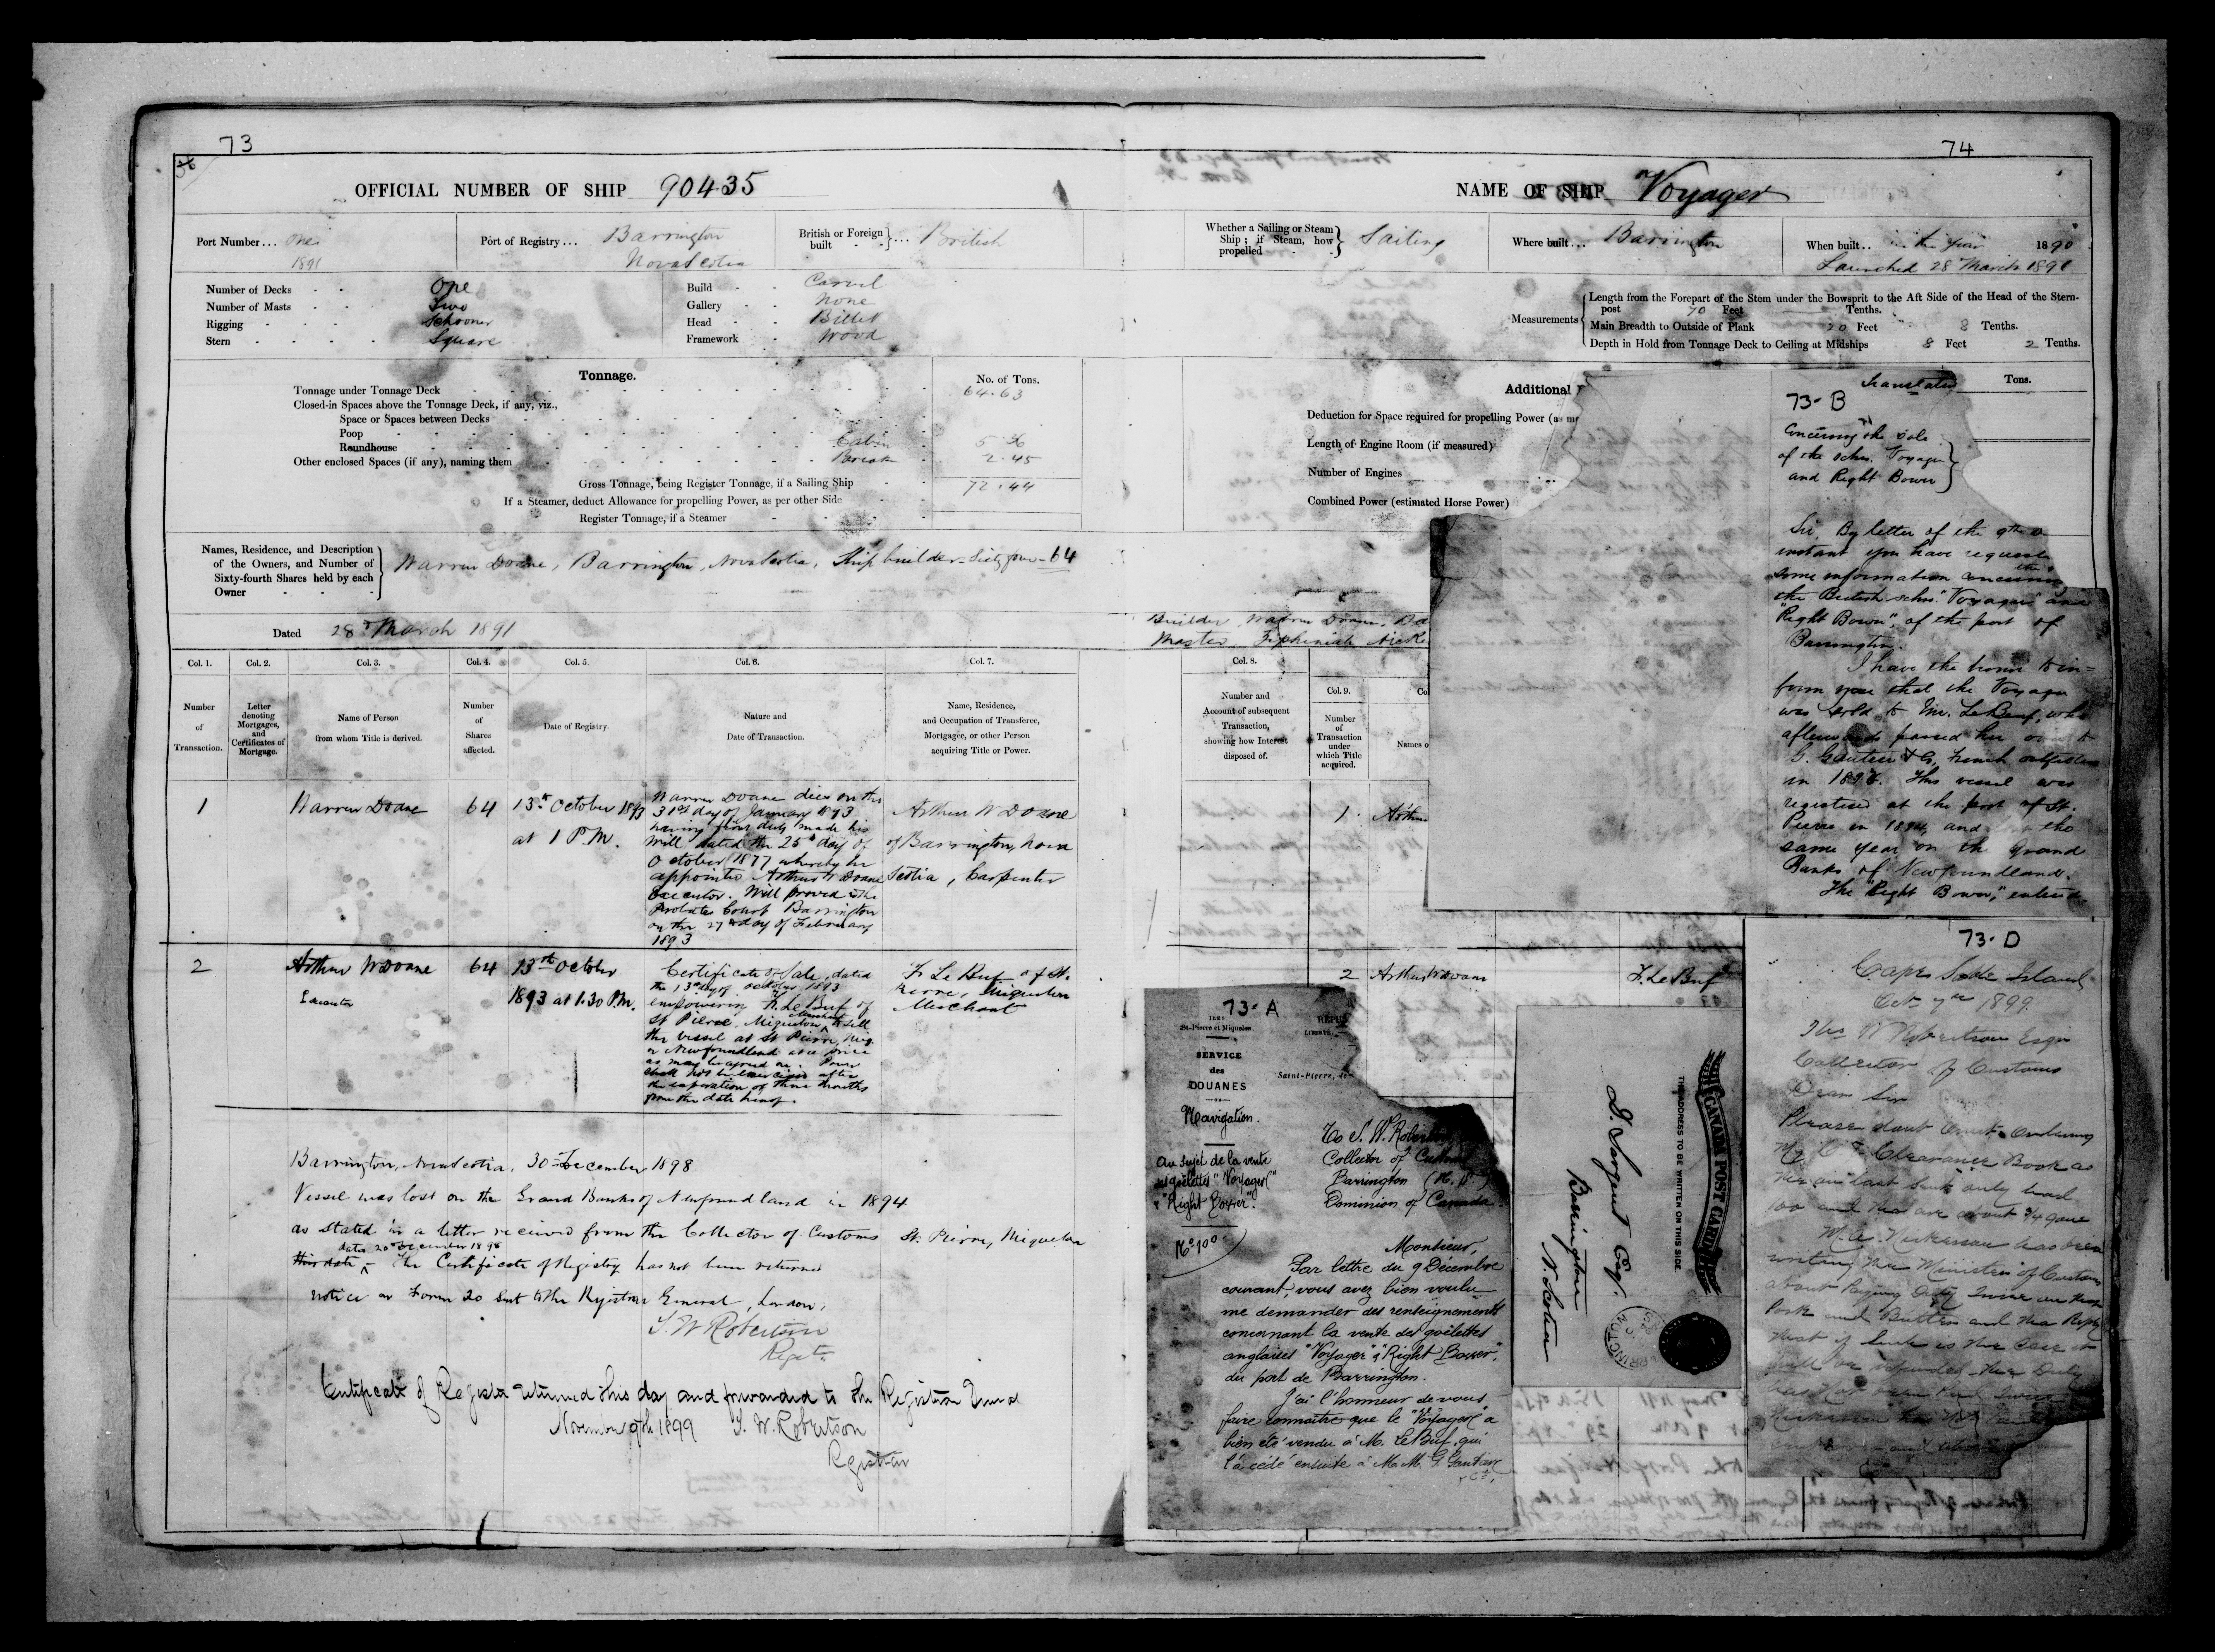 73
36
OFFICIAL NUMBER OF SHIP 90435
Port Number... One
1891
Port of Registry... Barrington
Nova Scotia
British or Foreign built - -}... British
Number of Decks - - One
Number of Masts - - Two
Rigging - - - Schooner
Stern - - - - Square
Build - - Carvel
Gallery - - None
Head - - Billet
Framework - Wood
Tonnage.
No. of Tons.
Tonnage under Tonnage Deck 64.63
Closed-in Spaces above the Tonnage Deck, if any, viz.,
Space or Spaces between Decks
Poop
Roundhouse Cabin 5.36
Other enclosed Spaces (if any), naming them Break 2.45
Gross Tonnage, being Register Tonnage, if a Sailing Ship 72.44
If a Steamer, deduct Allowance for propelling Power, as per other Side
Register Tonnage, if a Steamer
Names, Residence, and Description
of the Owners, and Number of
Sixty-fourth Shares held by each
Owner
Warren Doane, Barrington, Nova Scotia, Ship builder - Sixty four - 64
Dated 28th March 1891
Col. 1. Col. 2. Col. 3. Col. 4. Col. 5. Col. 6. Col. 7.
Number of Transaction.
Letter denoting Mortgages, and Certificates of Mortgage.
Name of Person from whom Title is derived.
Number of Shares affected.
Date of Registry.
Nature and Date of Transaction.
Name, Residence, and Occupation of Transferee, Mortgagee, or other Person acquiring Title or Power.
1
Warren Doane
64
13th October 1893
at 1 P.M.
Warren Doane died on the
31st day of January 1893
having first duly made his
Will dated the 25th day of
October 1877 whereby he
appointed Arthur W Doane
Executor. Will proved in the
Probate Court Barrington
on the 27th day of February
1893
Arthur W Doane
of Barrington, Nova
Scotia, Carpenter
2
Arthur W Doane
Executor
64
13th October
1893 at 1.30 P.M.
Certificate of Sale, dated
the 13th day of October 1893
empowering F. Le Buf of
St Pierre, Miquelon Merchant to sell
the vessel at St Pierre, Miq.
or Newfoundland at a price
as may be agreed on. Power
shall not be exercised after
the expiration of three months
from the date hereof.
F. Le Buf of St.
Pierre, Miquelon
Merchant
Barrington, Nova Scotia, 30 December 1898
Vessel was lost on the Grand Banks of Newfoundland in 1894
as stated in a letter received from the Collector of Customs St. Pierre, Miquelon
dated 20 December 1898
this date - The Certificate of Registry has not been returned
notice on Form 20 sent to the Registrar General, London,
T. W Robertson
Regst.
Certificate of Register returned this day and forwarded to the Registrar General
November 9th 1899 T. W. Robertson
Registrar
74
NAME OF SHIP Voyager
Whether a Sailing or Steam Ship; if Steam, how propelled - -} Sailing
Where built... Barrington
When built.. in the year 1890
Launched 28 March 1891
Measurements
Length from the Forepart of the Stem under the Bowsprit to the Aft Side of the Head of the Stern-
post 70 Feet Tenths.
Main Breadth to Outside of Plank 20 Feet 8 Tenths.
Depth in Hold from Tonnage Deck to Ceiling at Midships 8 Feet 2 Tenths.
Additional
Tons.
Deduction for Space required for propelling Power (as
Length of Engine Room (if measured)
Number of Engines
Combined Power (estimated Horse Power)
Builder, Warren Doane,
Master, Zephaniah
Col. 8.
Number and Account of subsequent Transaction, showing how Interest disposed of.
Col. 9.
Number of Transaction under which Title acquired.
Names o
1 Arthur
2 Arthur W Doane F. Le Buf
Translated
73-B
Concerning the sale
of the schrs. Voyager
and Right Bower
Sir, By letter of the 9th
instant you have requested
some information concerning
the British schrs. "Voyager" and
"Right Bower", of the port of
Barrington.
I have the honor to in=
form you that the Voyager
was sold to Mr. LeBeuf, who
afterwards passed her over to
G. Gautier & Co, French outfitters
in 1893. This vessel was
registered at the port of St.
Pierre in 1894, and lost the
same year on the Grand
Banks of Newfoundland.
The "Right Bower," entered
73-A
ILES
St-Pierre et Miquelon.
SERVICE
des
DOUANES
Navigation.
Au sujet de la vente
des goëlettes "Voyager"
"Right Bower".
No 100
LIBERTÉ
Saint-Pierre, le
To T. W. Robertson
Collector of Customs
Barrington (N. S.)
Dominion of Canada.
Monsieur,
Par lettre du 9 Décembre
courant, vous avez bien voulu
me demander des renseignements
concernant la vente des goëlettes
anglaises "Voyager" & "Right Bower",
du port de Barrington.
J'ai l'honneur de vous
faire connaître que le "Voyager" a
bien été vendu à M. LeBuf, qui
l'a cédé ensuite à M.M. G. Gautier
& Cie,
CANADA POST CARD
THE ADDRESS TO BE WRITTEN ON THIS SIDE
J. Sargent Esq.
Barrington
N. Scotia
73-D
Cape Sable Island
Oct 1899
Thos W Robertson Esqr
Collector of Customs
Dear Sir
Please dont omit ordering
My Clearance Book as
the last sent only had
100 and the are about 3/4 gone
Nickerson has been
writing the Minister of Customs
about Paying duty twice on
Pork and Butter and the Reply
that if such is the case it
will be refunded the Duty